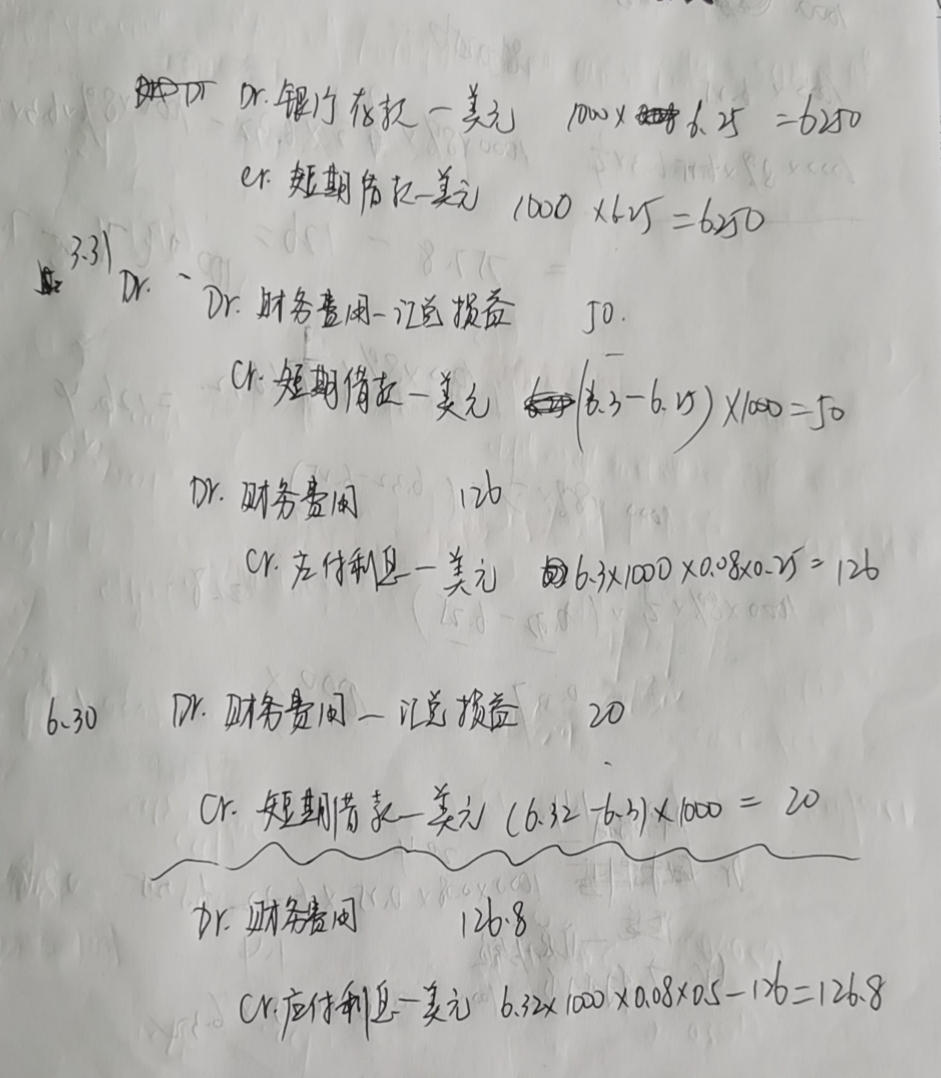 Dr. 银行存款-美元 1000×6.25=6250
Cr. 短期借款-美元 1000×6.25=6250
3.31 Dr. 、 Dr. 财务费用-汇兑损益 50.
Cr. 短期借款-美元 (6.3-6.25)×1000=50
Dr. 财务费用 126
Cr. 应付利息-美元 6.3×1000×0.08×0.25=126
6.30 Dr. 财务费用-汇兑损益 20
Cr. 短期借款-美元 (6.32-6.3)×1000=20
Dr. 财务费用 126.8
Cr. 应付利息-美元 6.32×1000×0.08×0.5-126=126.8